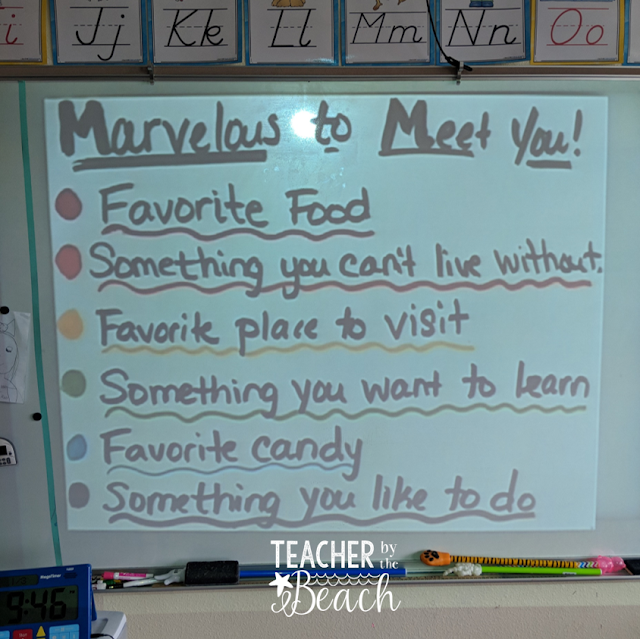 i Jj Kk Ll Mm Nn Oo
Marvelous to Meet You!
Favorite Food
Something you can't live without.
Favorite place to visit
Something you want to learn
Favorite candy
Something you like to do
TEACHER by the Beach
9:46